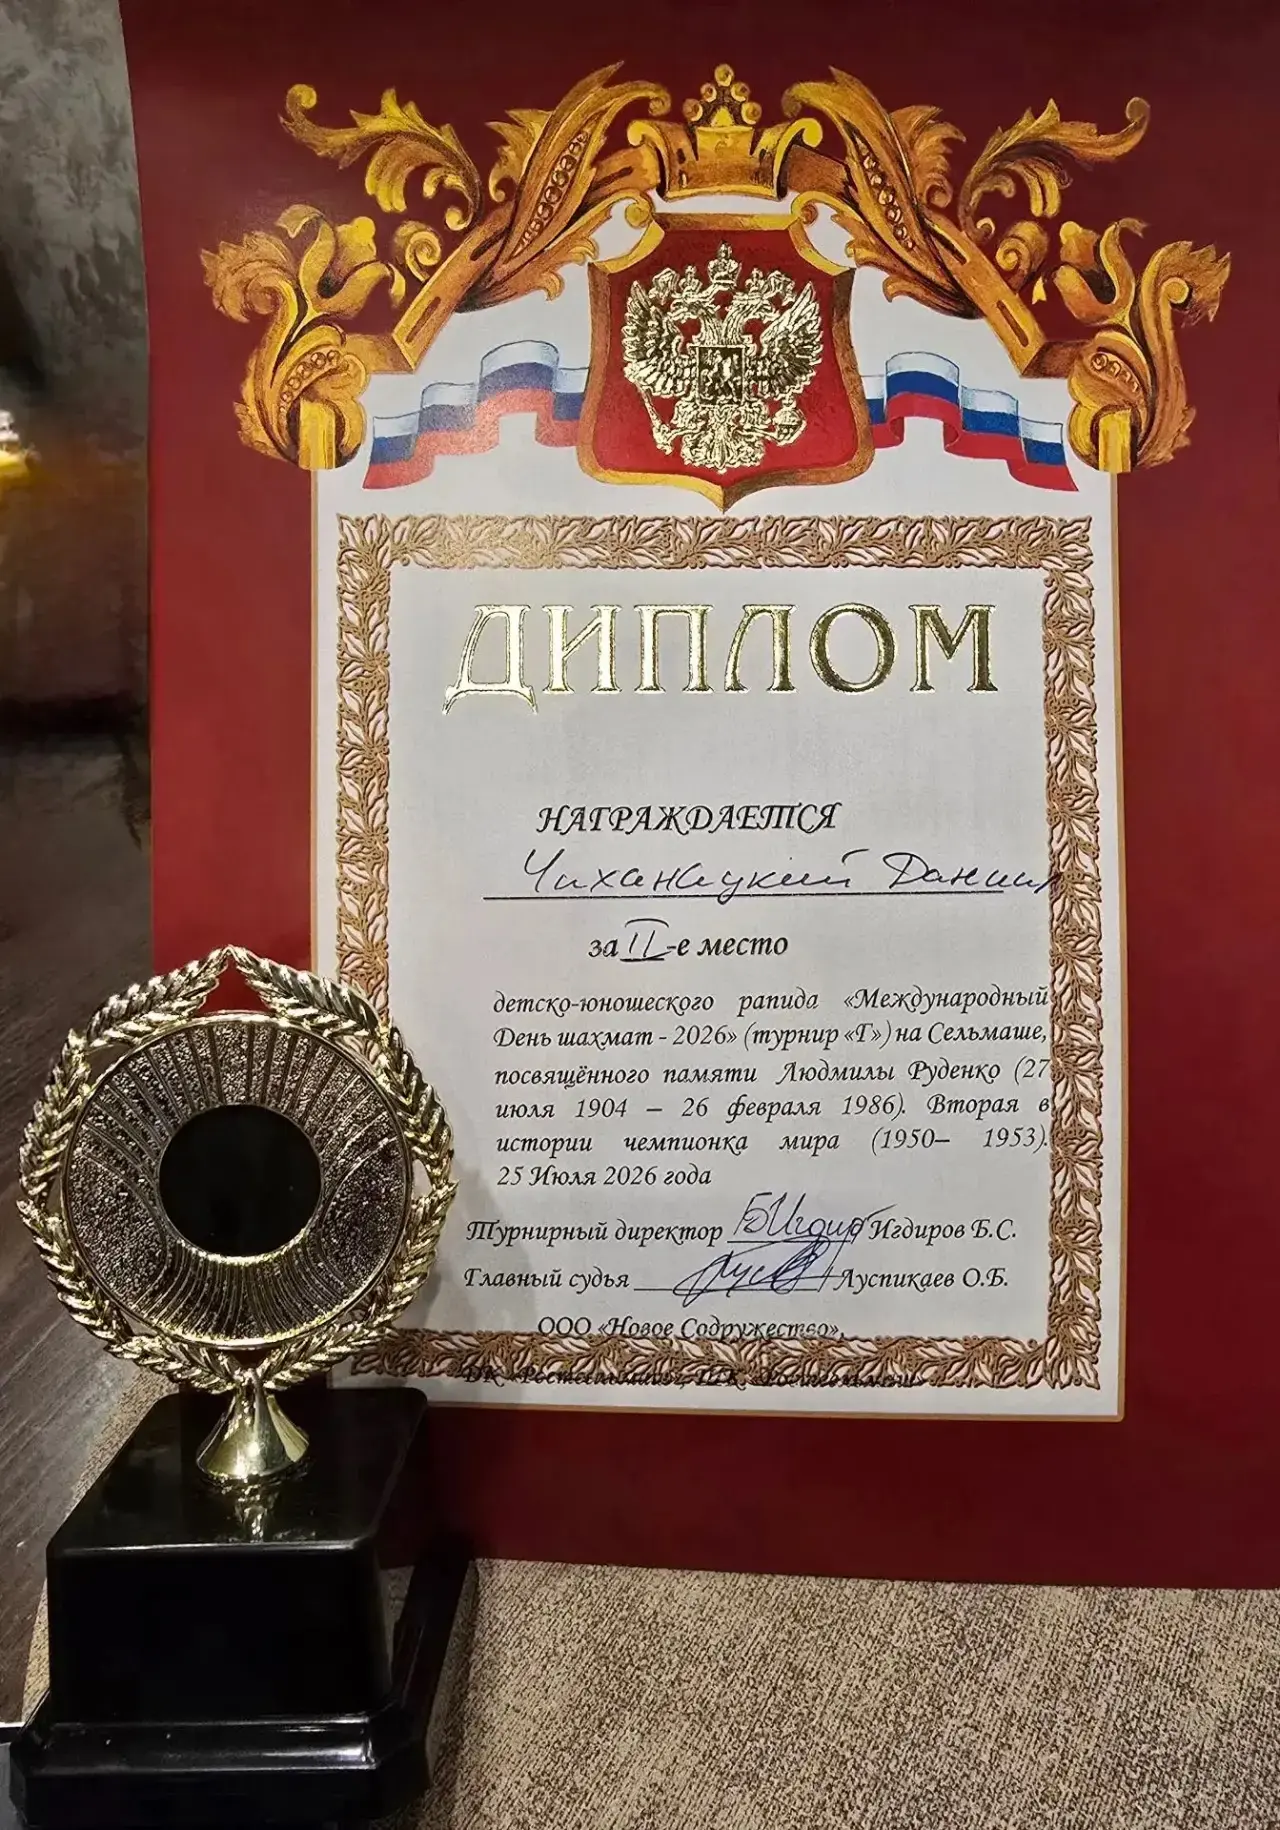 ДИПЛОМ
НАГРАЖДАЕТСЯ
Чиханацкий Даниил
за II-е место
детско-юношеского рапида «Международный
День шахмат - 2026» (турнир «Г») на Сельмаше,
посвящённого памяти Людмилы Руденко (27
июля 1904 – 26 февраля 1986). Вторая в
истории чемпионка мира (1950– 1953).
25 Июля 2026 года
Турнирный директор Игдиров Б.С.
Главный судья Луспикаев О.Б.
ООО «Новое Содружество»,
ДК «Ростсельмаш», «Ростсельмаш»